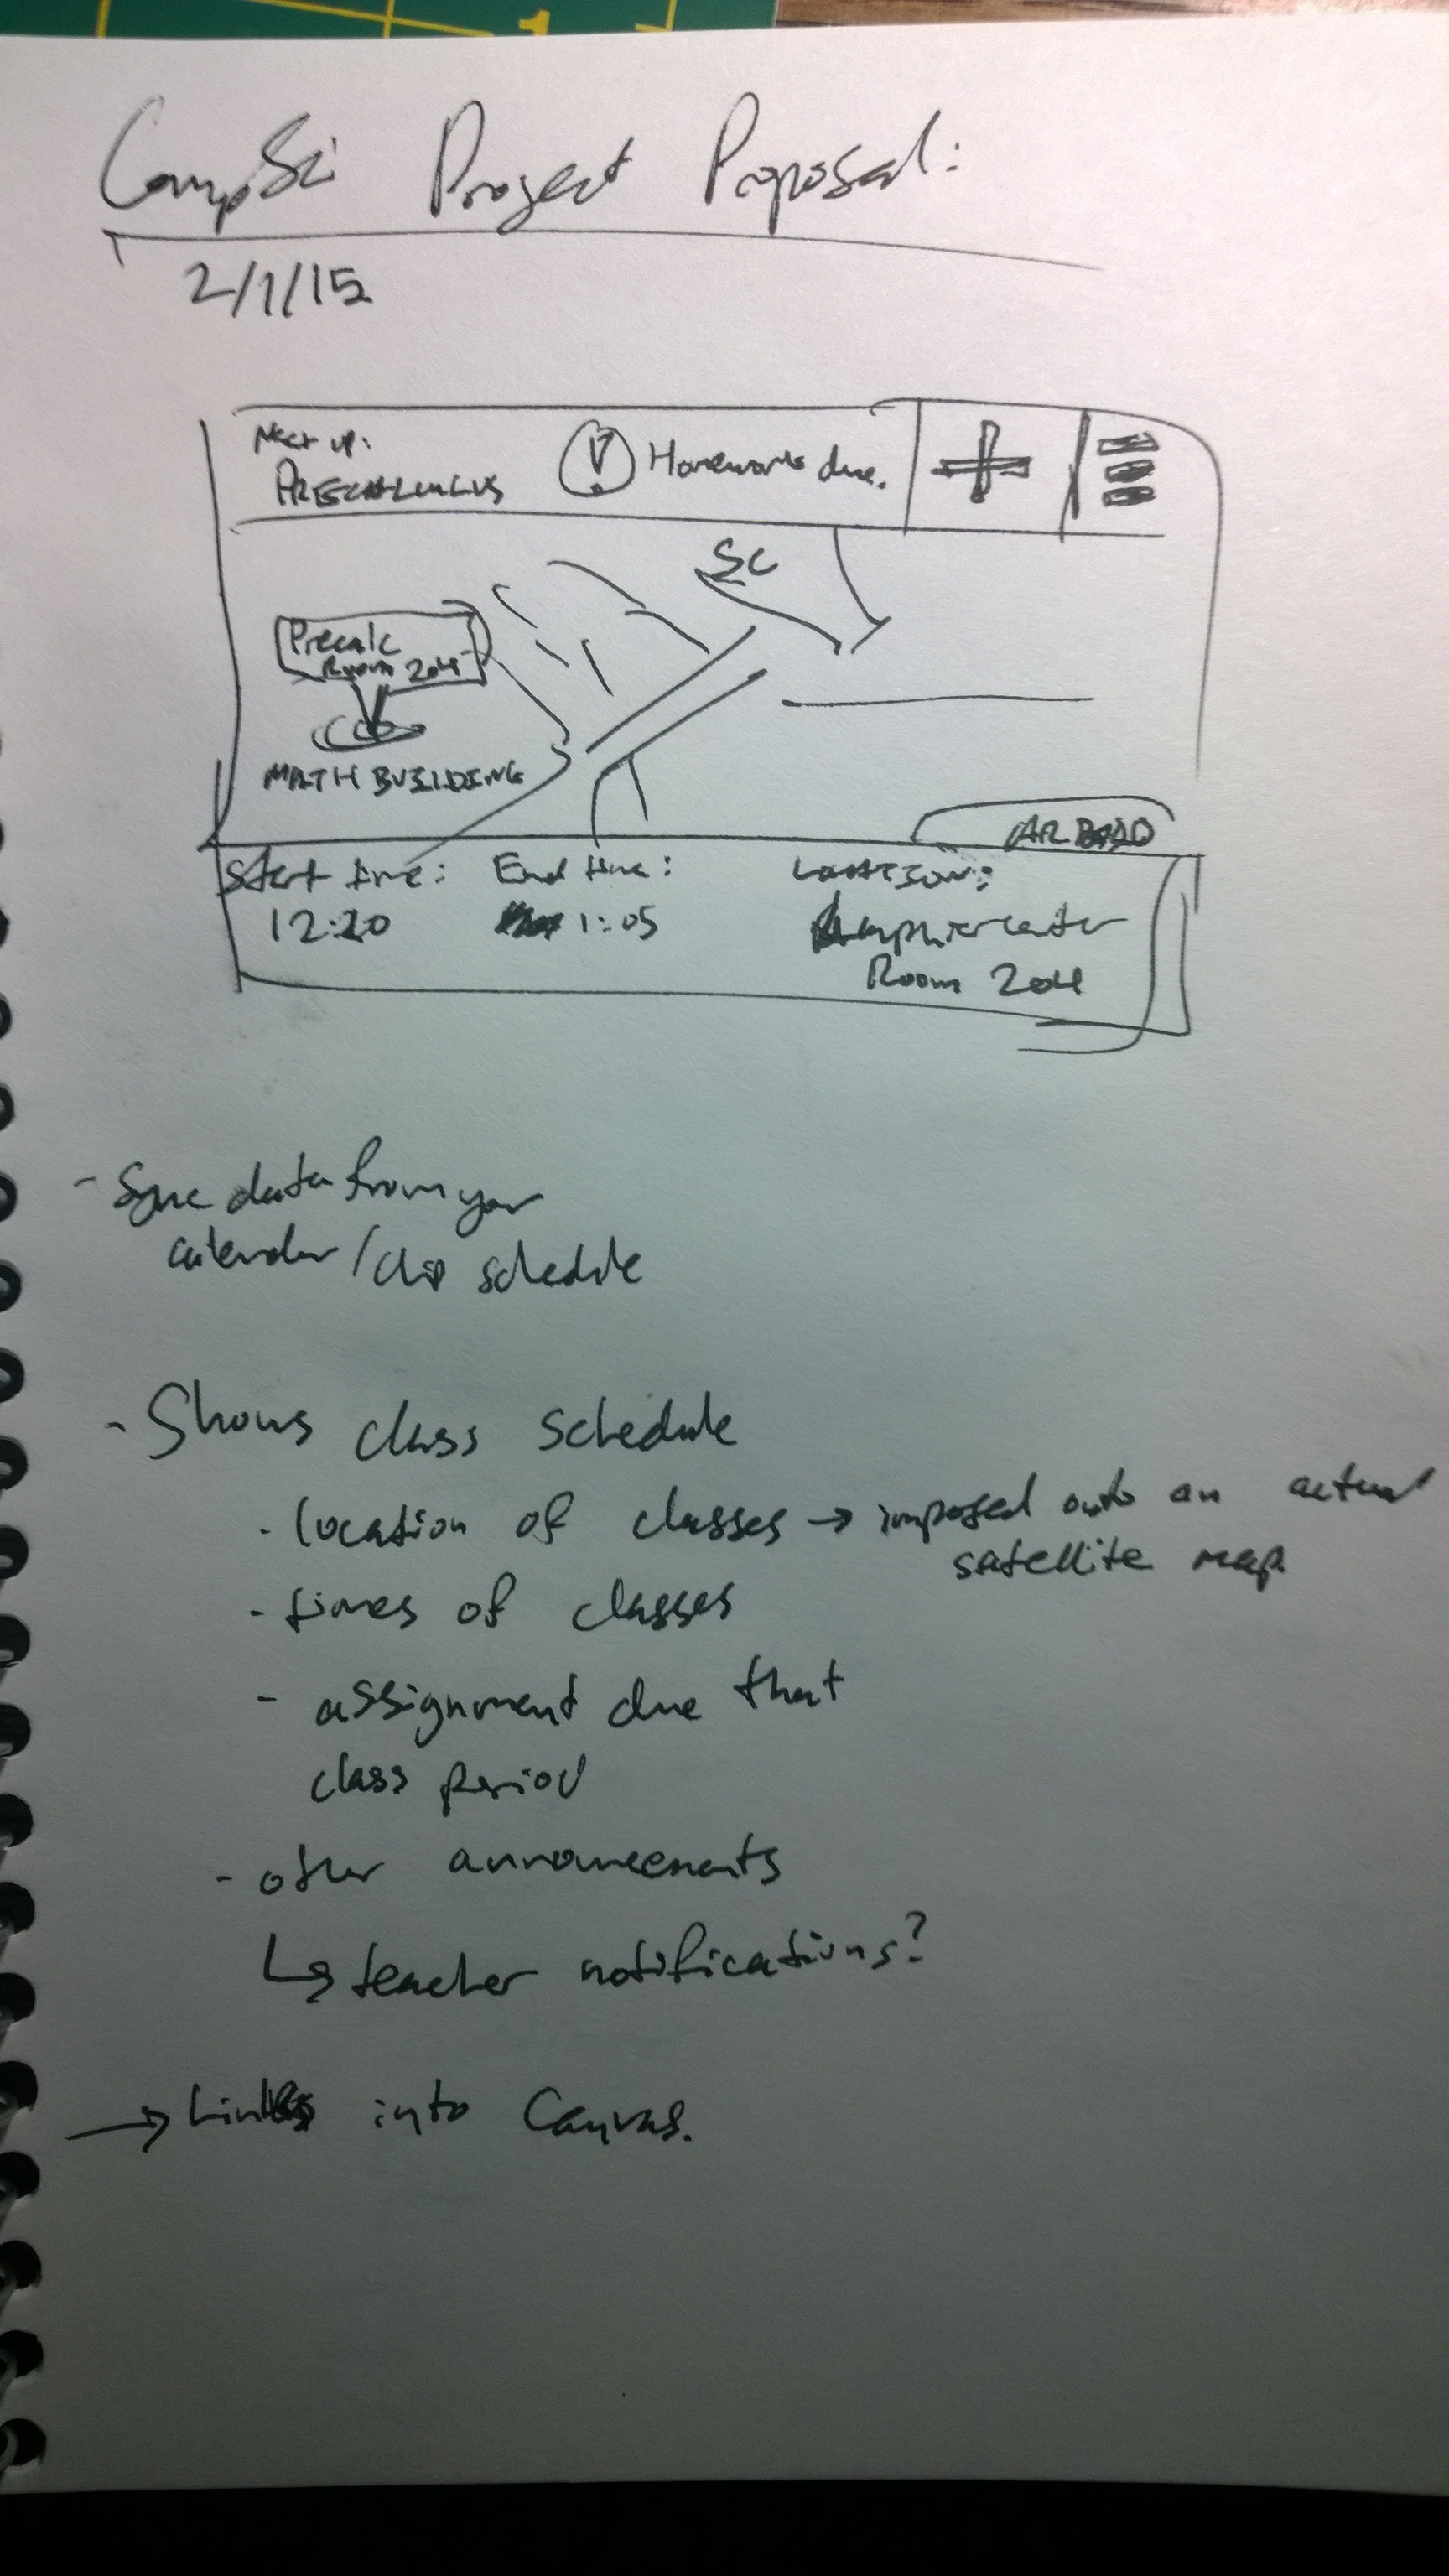 CompSci Project Proposal:
2/1/15
Next up:
PRECALCULUS
! Homework due.
SC
Precalc
Room 204
MATH BUILDING
Start time:
12:20
End time:
1:05
LOCATION:
Room 204
- Sync data from your
calendar / schedule
- Shows class schedule
- location of classes → imposed onto an actual
satellite map
- times of classes
- assignment due that
class period
- other announcements
↳ teacher notifications?
→ Links into Canvas.